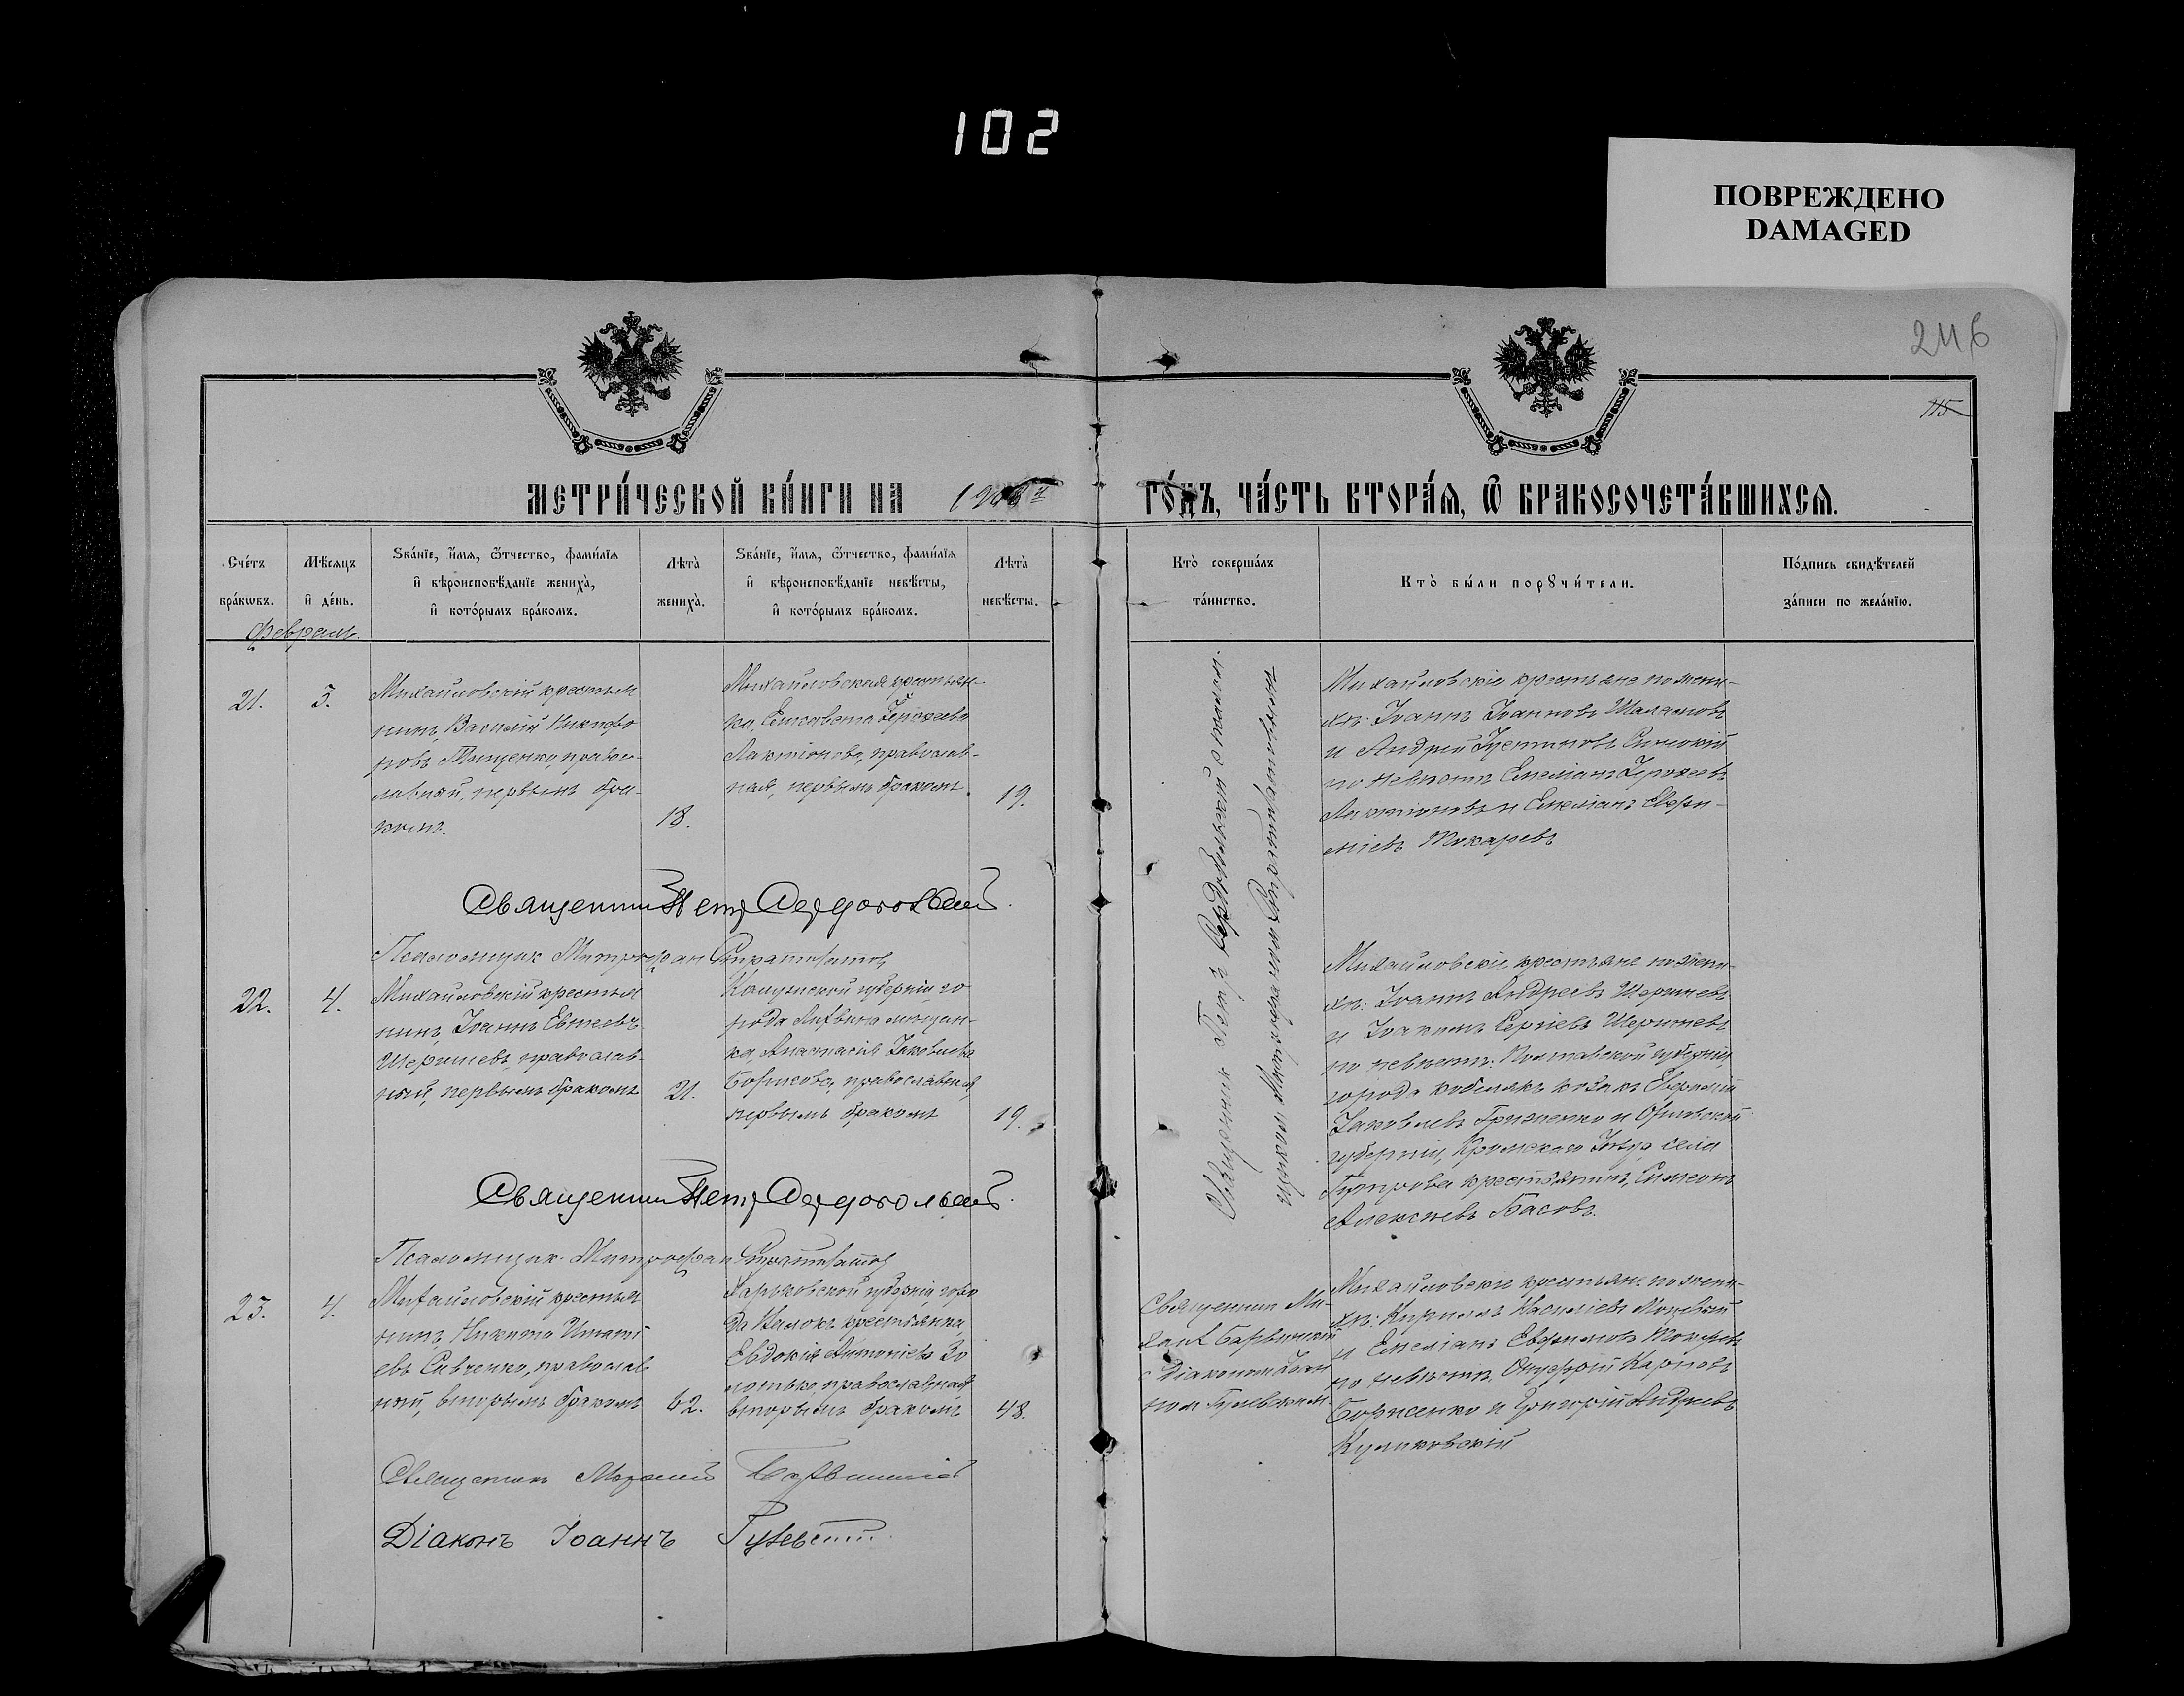 102
ПОВРЕЖДЕНО
DAMAGED
246
115
МЕТРИ́ЧЕСКОЙ КНИ́ГИ НА
ГО́ДЪ, ЧА́СТЬ ВТОРА́Я, Ѿ БРАКОСОЧЕТА́ВШИХСЯ.
Сче́тъ
бра́кѡвъ.
Мѣ́сяцъ
и де́нь.
Зва́нїе, и́мя, ѻ́тчество, фами́лїя
и вѣроисповѣ́данїе жениха̀,
и кото́рымъ бра́комъ.
Лѣта̀
жениха̀.
Зва́нїе, и́мя, ѻ́тчество, фами́лїя
и вѣроисповѣ́данїе невѣ́сты,
и кото́рымъ бра́комъ.
Лѣта̀
невѣ́сты.
Кто̀ соверша́лъ
та́инство.
Кто̀ бы́ли порꙋчи́тели.
По́дпись свидѣ́телей
за́писи по жела́нїю.
Февраль.
21.
3.
Михайловскій крестья
нинъ, Василій Никифо
ровъ Тищенко, право-
славный, первымъ бра-
комъ.
18.
Михайловская крестьян-
ка, Елисавета Іерофеева
Лактіонова, православ-
ная, первымъ бракомъ.
19.
Михайловскіе крестьяне по жени-
хѣ: Іоаннъ Іоанновъ Шаламовъ
и Андрей Іустиновъ
по невѣстѣ Емеліанъ Іерофеевъ
Лактіоновъ и Емеліанъ Евфи-
міевъ Токаревъ
Священникъ Петръ Сердобольскій
Псаломщик Митрофан Стратилатов
22.
4.
Михайловскій крестья
нинъ, Іоаннъ Евтеевъ
Шершневъ, православ-
ный, первымъ бракомъ
21.
Калужской губерніи, го
рода Лихвина мещан-
ка, Анастасія Іаковлева
Борисова, православная
первымъ бракомъ
19.
Священник Петръ Сердобольскій с псалом-
щиком Митрофаном Стратилатовым
Михайловскіе крестьяне по жени-
хѣ: Іоаннъ Андреевъ Шершневъ
и Іоакимъ Сергіевъ Шершневъ
по невѣстѣ: Полтавской губерніи,
города Кобелякъ козакъ Евфимій
Іаковлевъ Гриценко и Орловской
губерніи, Кромскаго уѣзда, села
крестьянинъ, Симеонъ
Алексѣевъ Басовъ.
Священник Петръ Сердобольскій.
Псаломщик Митрофан Стратилатов
23.
4.
Михайловскій крестья
нинъ, Никита Игнаті
евъ Савченко, православ
ный, вторымъ бракомъ
62.
Харьковской губерніи, горо
да Валокъ крестьянка,
Евдокія Антоніева Зо
лотько, православная
вторымъ бракомъ
48.
Священник Ми-
хаил Барвинскій
с Діаконом Іоан
ном Гулевским
Михайловскіе крестьян. по жени-
хѣ: Кириллъ Василіевъ
и Емеліанъ Евфимовъ Токаревъ
по невѣстѣ, Онуфрій Карповъ
Борисенко и Григорій Андреевъ
Куликовскій
Священникъ Михаилъ Барвинскій
Діаконъ Іоаннъ Гулевскій.